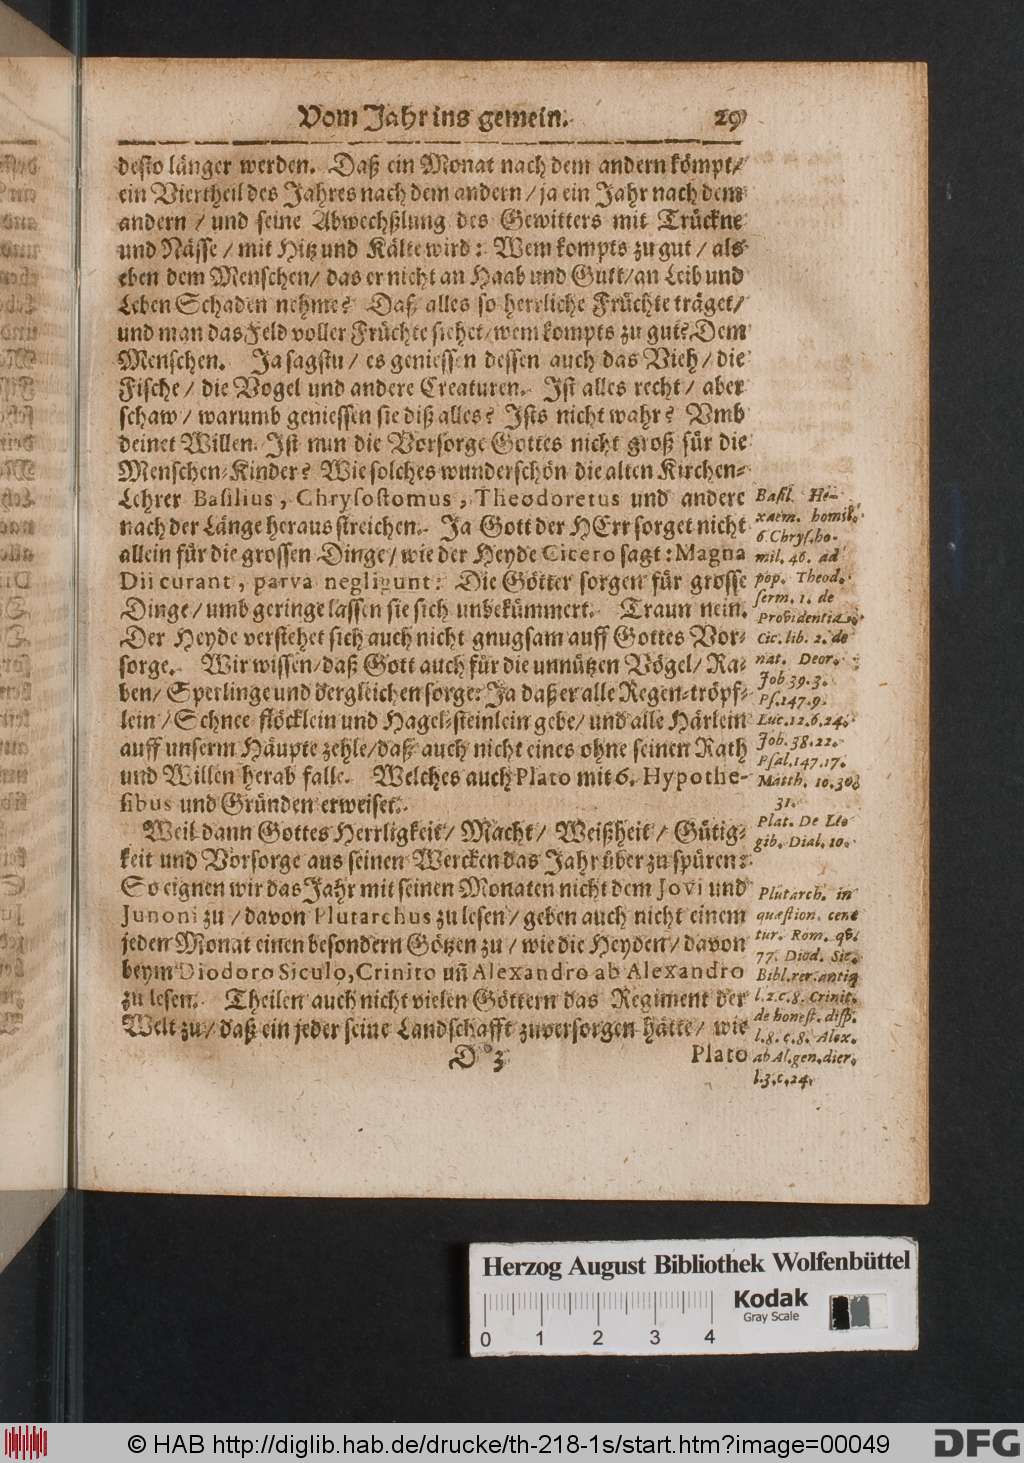 Vom Jahr ins gemein. 29
desto länger werden. Daß ein Monat nach dem andern kömpt/
ein Viertheil des Jahres nach dem andern / ja ein Jahr nach dem
andern / und seine Abwechßlung des Gewitters mit Trückne
und Nässe / mit Hitz und Kälte wird: Wem kompts zu gut / als
eben dem Menschen/ das er nicht an Haab und Gutt/an Leib und
Leben Schaden nehme? Daß alles so herrliche Früchte träget/
und man das Feld voller Früchte siehet/wem kompts zu gut? Dem
Menschen. Ja sagstu / es geniessen dessen auch das Vieh / die
Fische / die Vogel und andere Creaturen. Ist alles recht/ aber
schaw / warumb geniessen sie diß alles? Ists nicht wahr? Vmb
deinet Willen. Ist nun die Vorsorge Gottes nicht groß für die
Menschen-Kinder? Wie solches wunderschön die alten Kirchen-
Lehrer Basilius, Chrysostomus, Theodoretus und andere
nach der Länge heraus streichen. Ja Gott der HErr sorget nicht
allein für die grossen Dinge/ wie der Heyde Cicero sagt: Magna
Dii curant, parva negligunt: Die Götter sorgen für grosse
Dinge/ umb geringe lassen sie sich unbekümmert. Traun nein.
Der Heyde verstehet sich auch nicht gnugsam auff Gottes Vor-
sorge. Wir wissen/daß Gott auch für die unnützen Vögel/ Ra-
ben/ Sperlinge und dergleichen sorge: Ja daß er alle Regen-tröpf-
lein / Schnee flöcklein und Hagel-steinlein gebe/ und alle Härlein
auff unserm Häupte zehle/daß auch nicht eines ohne seinen Rath
und Willen herab falle. Welches auch Plato mit 6. Hypothe-
sibus und Gründen erweiset.
Weil dann Gottes Herrligkeit/ Macht/ Weißheit/ Gütig-
keit und Vorsorge aus seinen Wercken das Jahr über zu spüren:
So eignen wir das Jahr mit seinen Monaten nicht dem Jovi und
Junoni zu / davon Plutarchus zu lesen/ geben auch nicht einem
jeden Monat einen besondern Götzen zu / wie die Heyden/ davon
beym Diodoro Siculo, Crinito uñ Alexandro ab Alexandro
zu lesen. Theilen auch nicht vielen Göttern das Regiment der
Welt zu/ daß ein jeder seine Landschafft zuversorgen hätte/ wie
D 3 Plato
Basil. He-
xaem. homil.
6 Chrys. ho-
mil. 46. ad
pop. Theod.
serm. 1. de
Providentia.
Cic. lib. 2. de
nat. Deor.
Job 39.3.
Ps. 147.9.
Luc. 12.6.24.
Job. 38.22.
Psal. 147.17.
Matth. 10.30.
31.
Plat. De Le-
gib. Dial. 10.
Plutarch. in
quæstion. cen-
tur. Rom. qv.
77. Diod. Sic.
Bibl. rer. antiq
l. 2. c. 8. Crinit.
de honest. disc.
l. 8. c. 8. Alex.
ab Al. gen. dier.
l. 3. c. 24.
Herzog August Bibliothek Wolfenbüttel
Kodak
Gray Scale
0 1 2 3 4
© HAB http://diglib.hab.de/drucke/th-218-1s/start.htm?image=00049
DFG